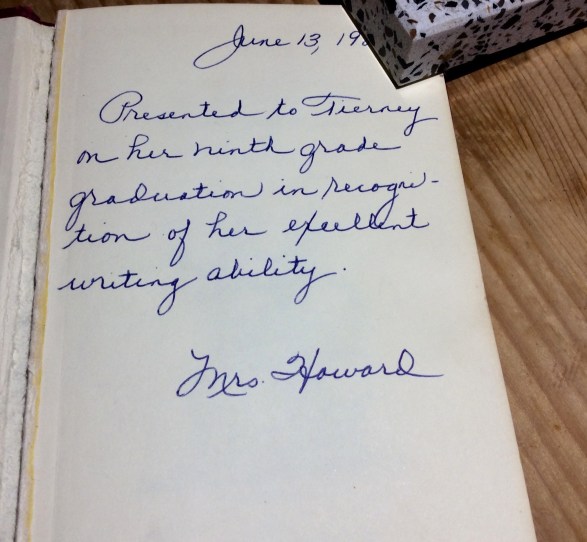 June 13, 19
Presented to Tierney
on her ninth grade
graduation in recogni-
tion of her excellent
writing ability.
Mrs. Howard